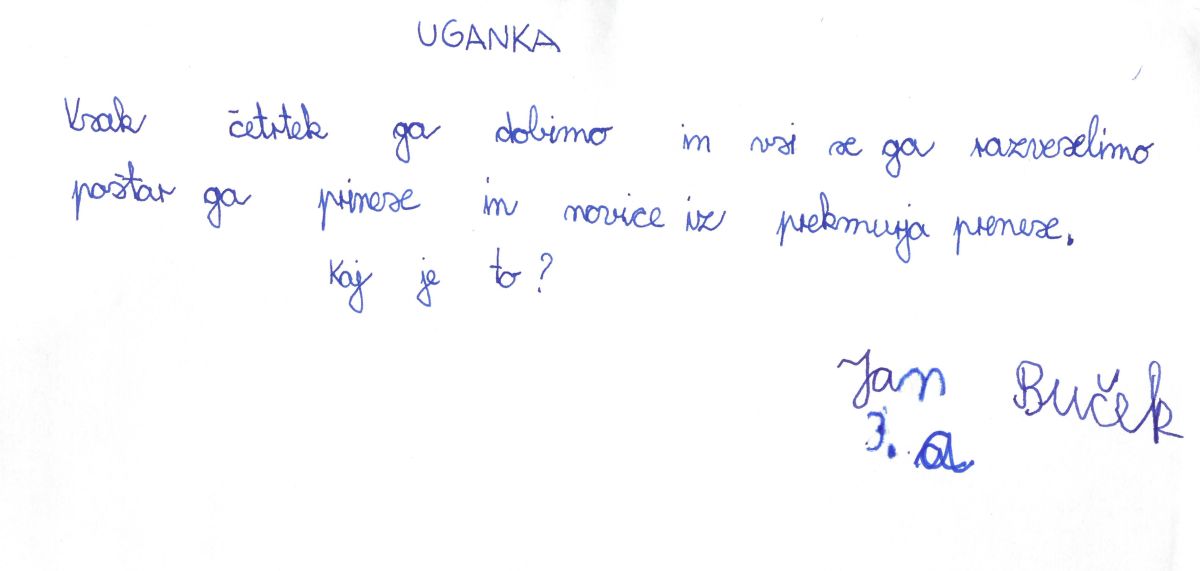 UGANKA
Vsak četrtek ga dobimo in vsi se ga razveselimo
poštar ga prinese in novice iz prekmurja prenese.
Kaj je to?
Jan Buček
3. a